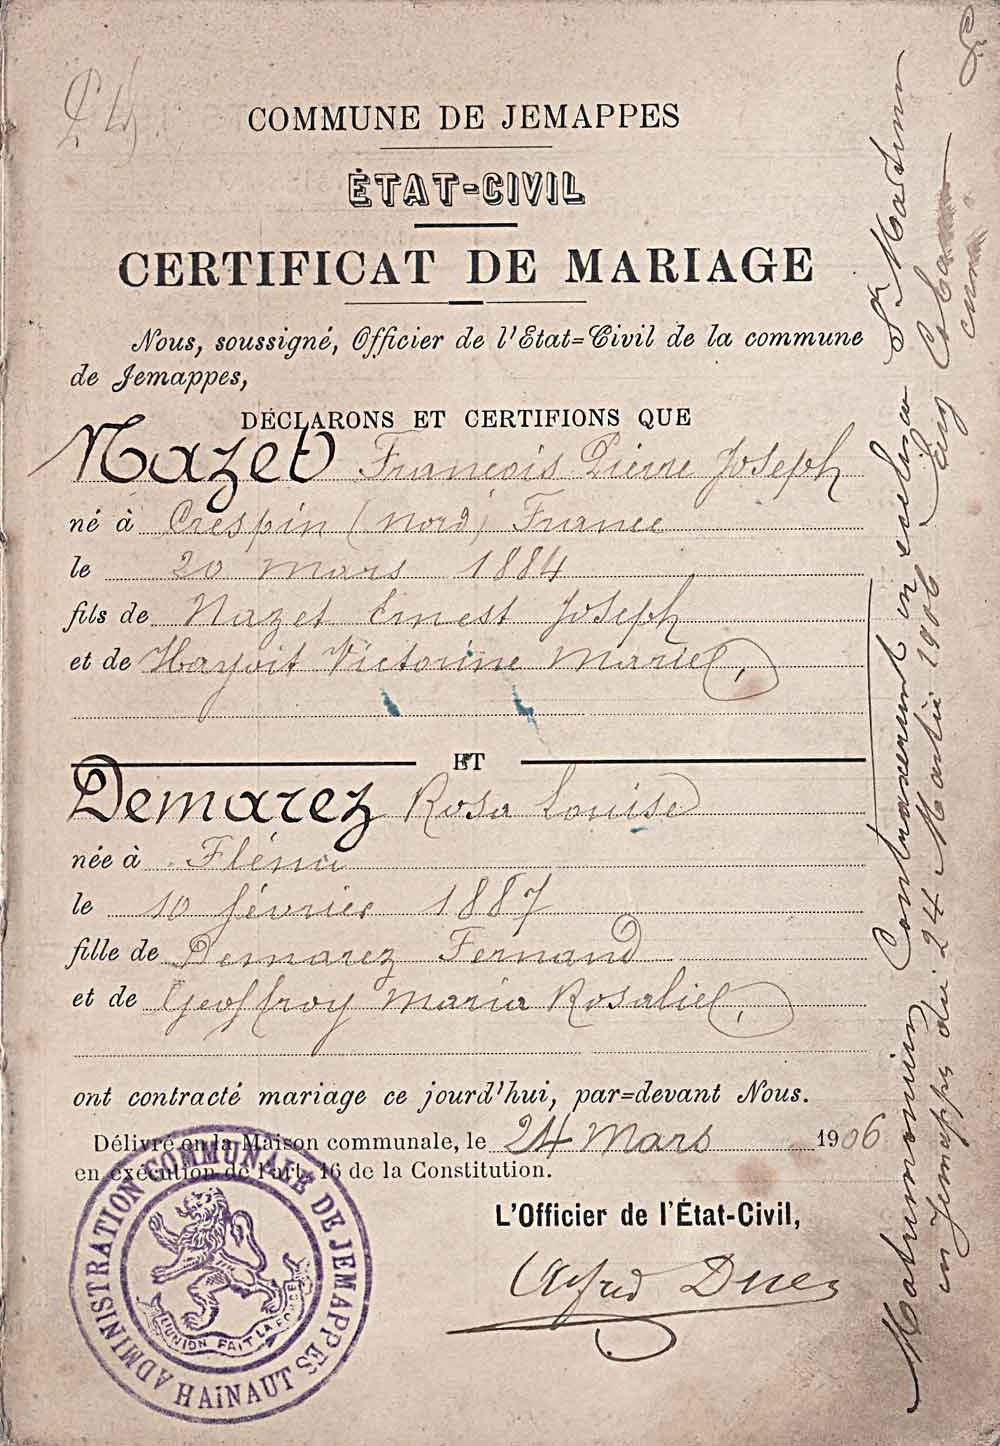 24
COMMUNE DE JEMAPPES
ÉTAT-CIVIL
CERTIFICAT DE MARIAGE
Nous, soussigné, Officier de l'Etat=Civil de la commune
de Jemappes,
DÉCLARONS ET CERTIFIONS QUE
Nazet François Pierre Joseph
né à Crespin (Nord) France
le 20 mars 1884
fils de Nazet Ernest Joseph
et de Hayoit Victorine Marie,
ET
Demarez Rosa Louise
née à Flénu
le 10 février 1887
fille de Demarez Fernand
et de Geoffroy Maria Rosalie,
ont contracté mariage ce jourd'hui, par=devant Nous.
Délivré en la Maison communale, le 24 Mars 1906
en exécution de l'art. 16 de la Constitution.
L'Officier de l'État-Civil,
Alfred Duez
ADMINISTRATION COMMUNALE DE JEMAPPES
HAINAUT
L'UNION FAIT LA FORCE
Matrimonium Contraxerunt in ecclesia St Martini
in Jemappes die 24 Martii 1906